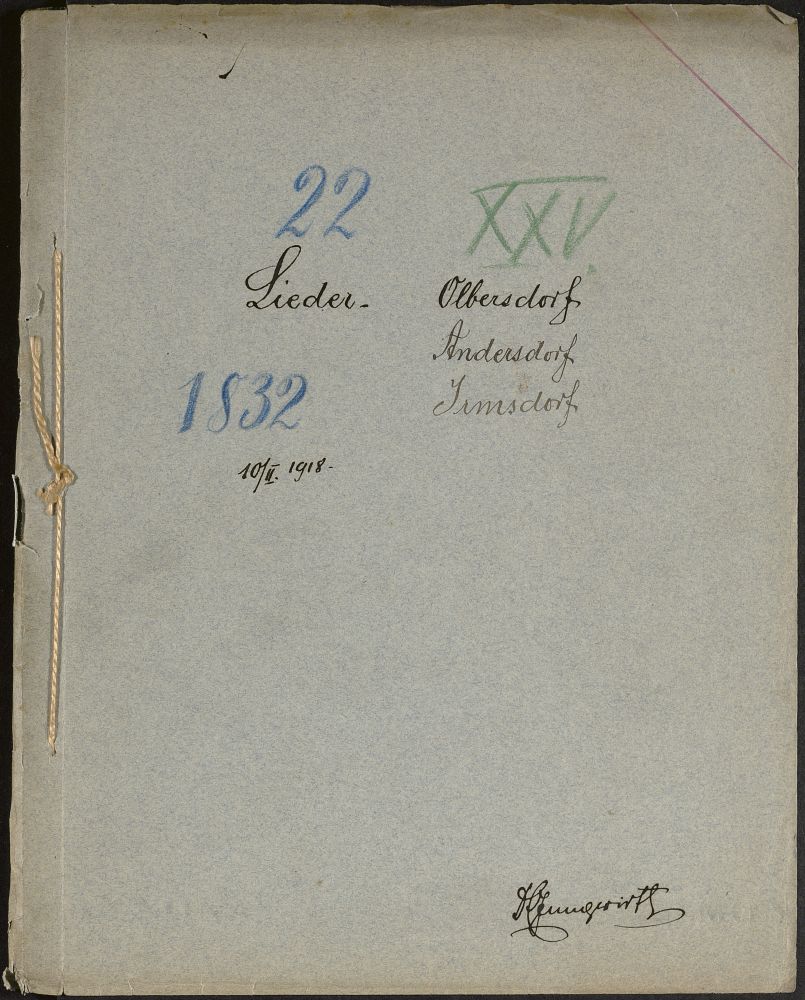 22
Lieder.
XXV.
Olbersdorf
Andersdorf
Irmsdorf
1832
10/II. 1918.
Jungwirth